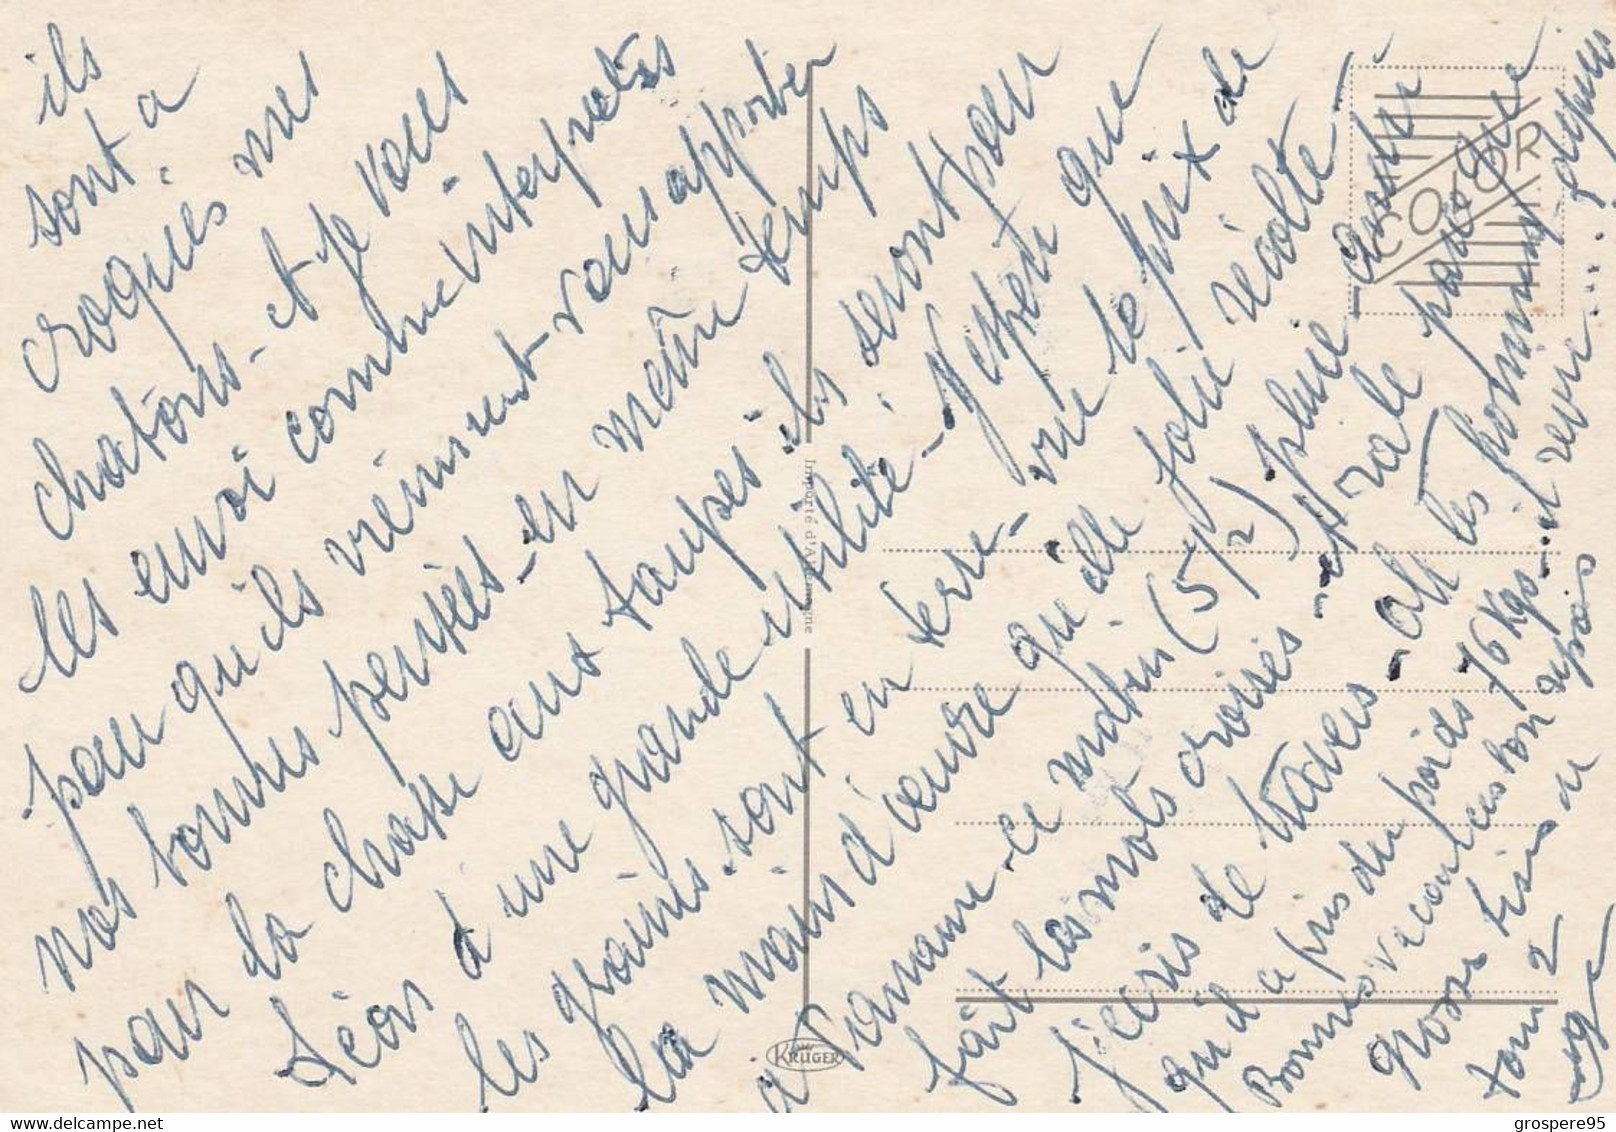 ils
sont à
croqués mes
chatons - et je vous
les envoi comme interpretes
pour qu'ils viennent vous apporter
nos bonnes pensées - en même temps
pour la chasse aux taupes ils seront pour
Léon d'une grande utilité - J'espère que
les grains sont en terre - vue le prix de
la main d'œuvre qu'elle jolie récolte -
a Panam - ce matin (5h 1/2) pluie - Aussi
fait les mots croisés - et râle parceque
j'écris de travers - ah les hommes
qu'il a pris du poids 76 Kgs - il revit... depuis
Bonnes vacances bon repos
grosse bise de
tous 2
COLOR
Importé d'Allemagne
KRÜGER
grospere95